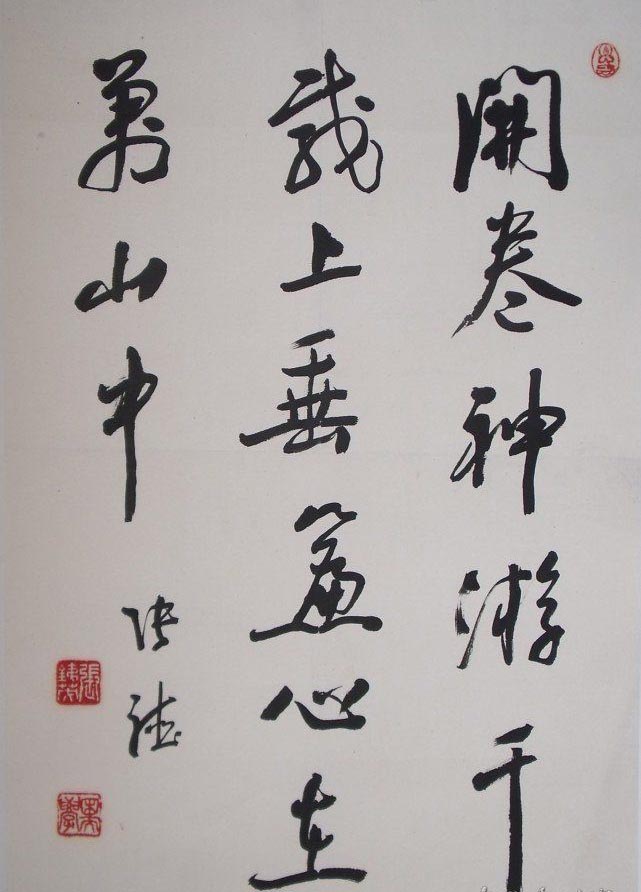 開卷神游千
載上垂簾心在
萬山中
張